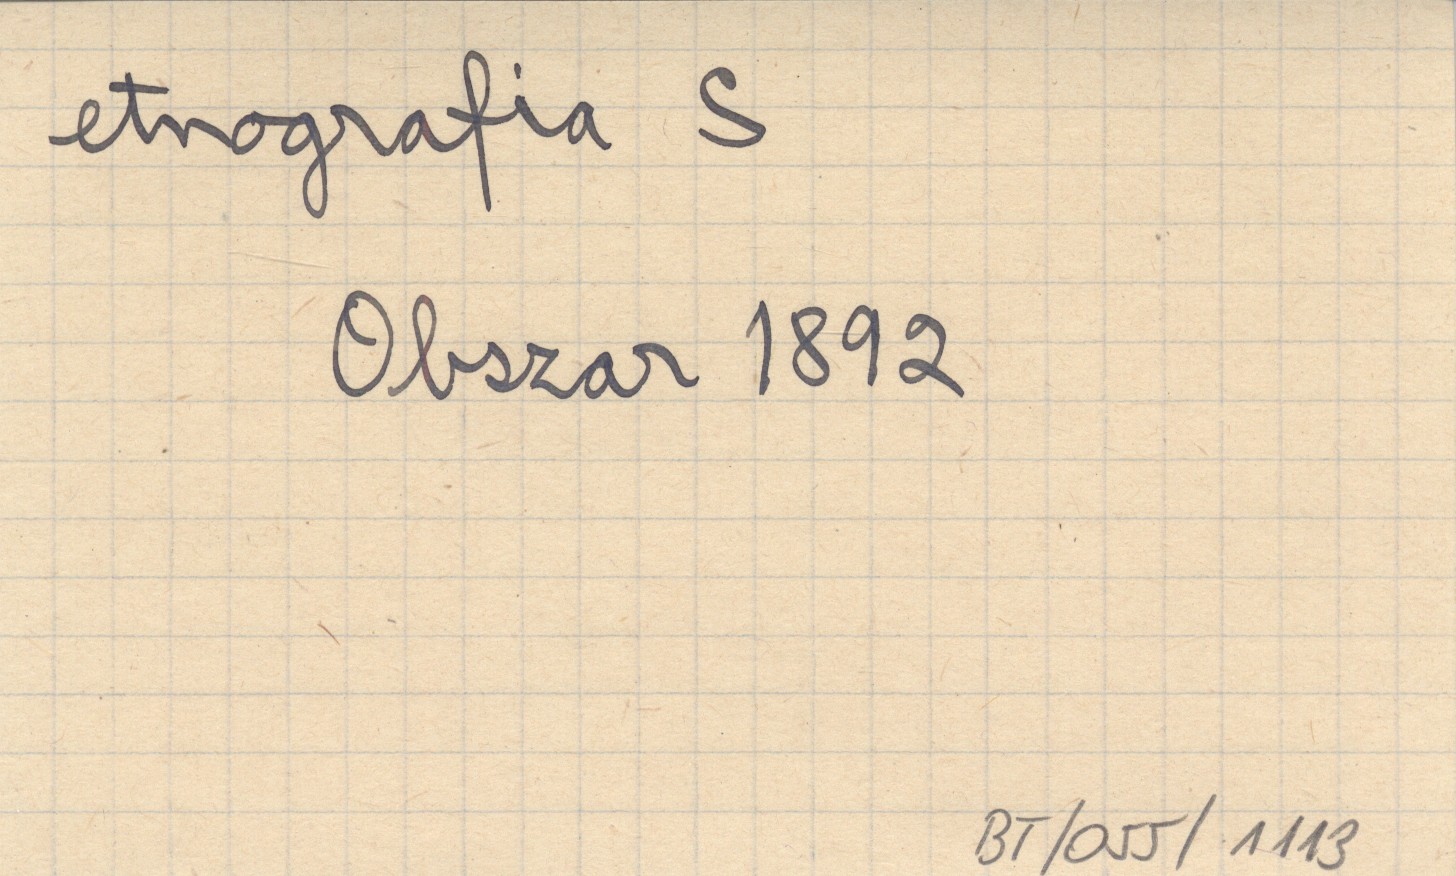 etnografia S
Obszar 1892
BT/055/1113